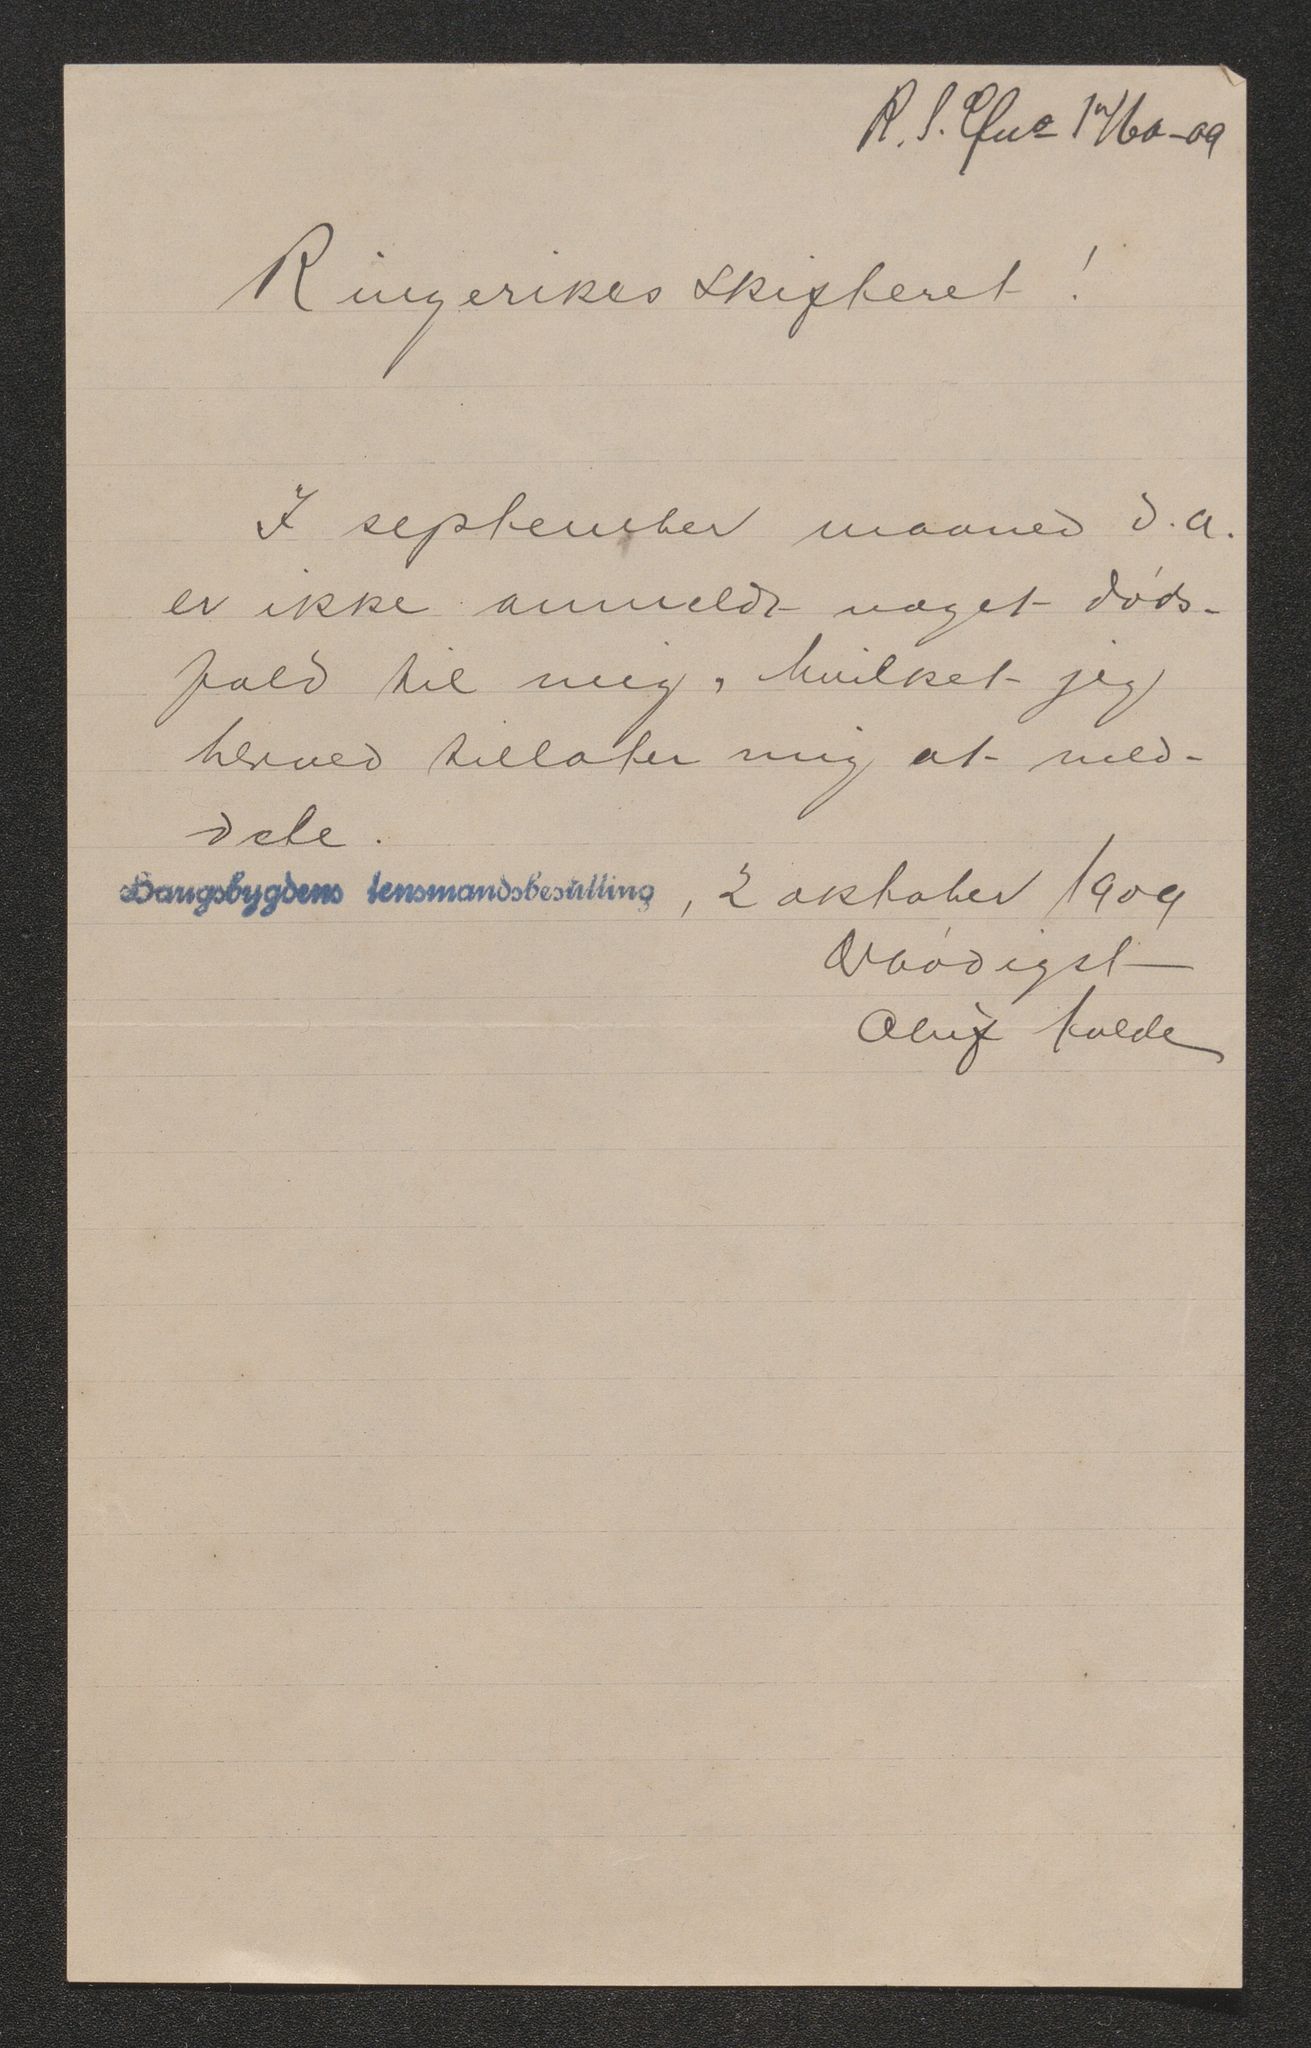 R. S.
Ringerikes skifteret!
I september maaned d.a.
er ikke anmeldt noget døds-
fald til mig, hvilket jeg
herved tillater mig at med-
dele.
Haugsbygdens lensmandsbestilling, 2 oktober 1909
Ærbødigst
Oluf